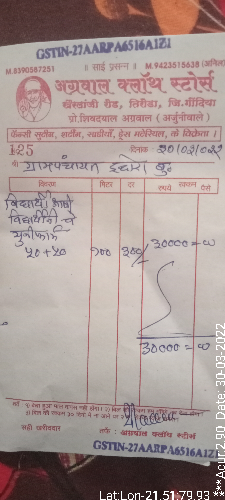 GSTIN-27AARPA6516A1Z1
॥ साई प्रसन्न ॥
M.8390587251 M.9423515638 (अनिल)
अग्रवाल क्लॉथ स्टोर्स
खैरलांजी रोड, तिरोडा, जि.गोंदिया
प्रो.शिवदयाल अग्रवाल (अर्जुनीवाले)
फॅन्सी सुटींग, शर्टींग, साडीयाँ, ड्रेस मटेरियल, के विक्रेता।
125 दिनांक 20/03/022
श्री ग्रामपंचायत इंदोरा बु.
विवरण मिटर दर रुपये रकम पैसे
विद्यार्थी
विद्यार्थीनी चे
युनीफॉर्म
५०+५० १०० 300/- 30000=00
30000=00
सही खरीददार
तर्फे : अग्रवाल क्लॉथ स्टोर्स
GSTIN-27AARPA6516A1Z1
***Acur:2.90 Date: 30-03-2022
Lat:Lon-21.51:79.93